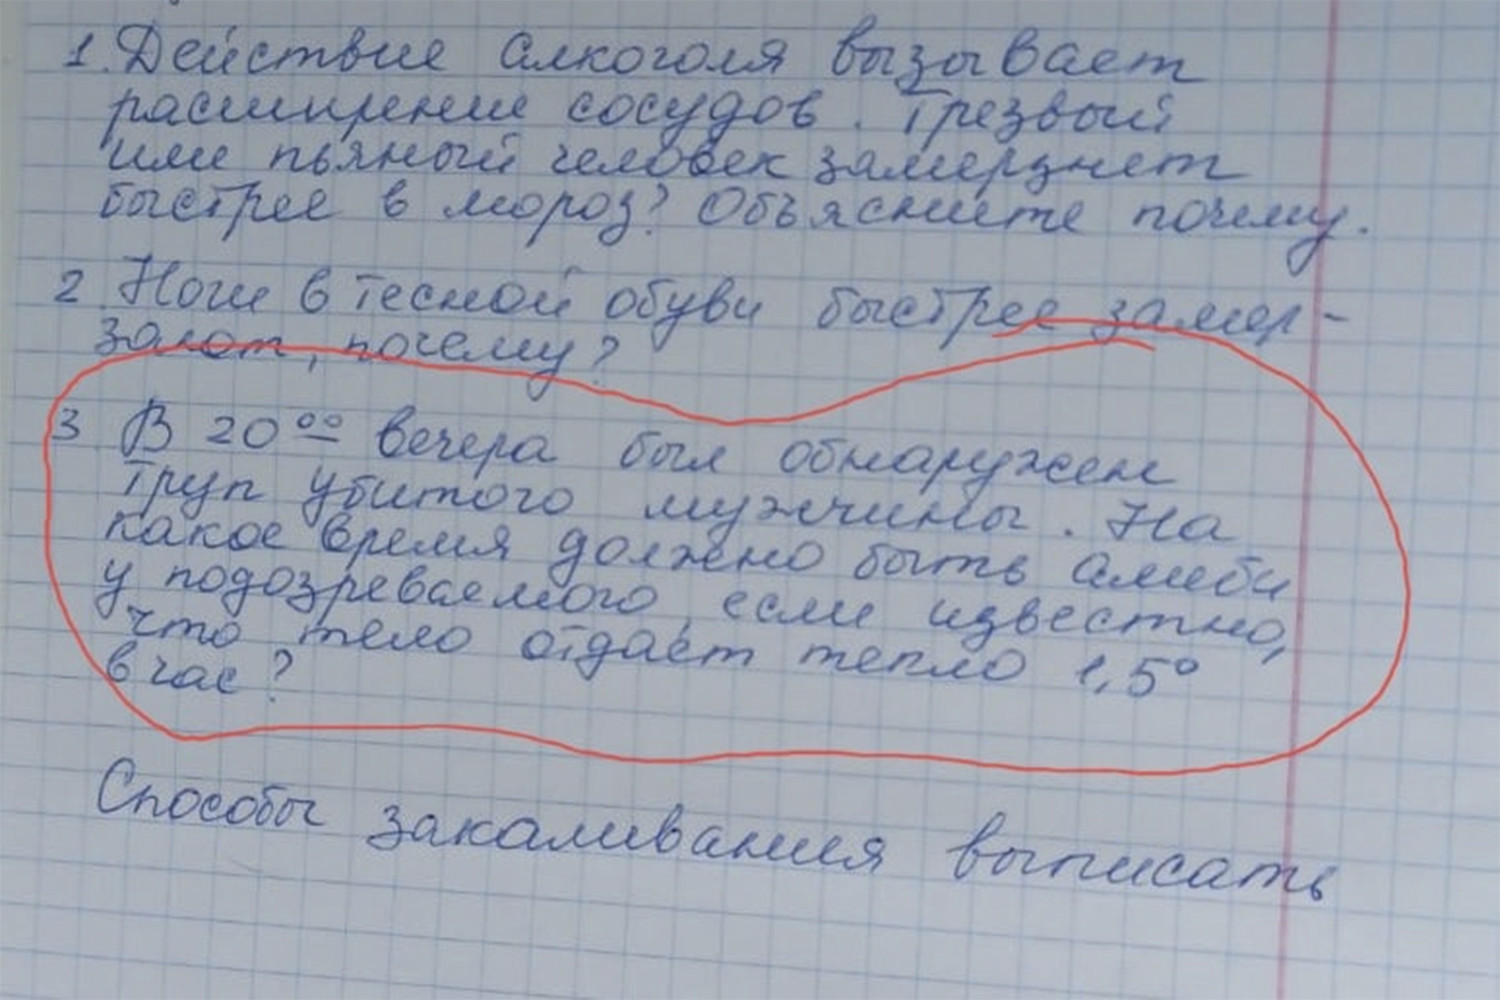 1. Действие алкоголя вызывает
расширение сосудов. Трезвый
или пьяный человек замерзнет
быстрее в мороз? Объясните почему.
2. Ноги в тесной обуви быстрее замер-
зают, почему?
3 В 20°° вечера был обнаружен
труп убитого мужчины. На
какое время должно быть алиби
у подозреваемого, если известно,
что тело отдаёт тепло 1,5°
в час?
Способы закаливания выписать